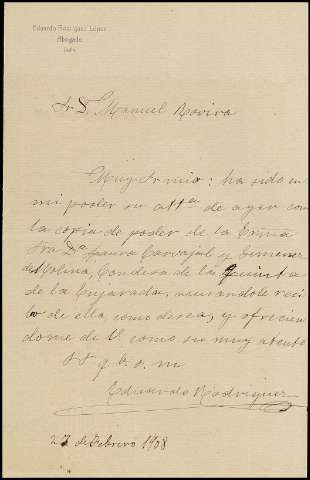 Eduardo Rodríguez López
Abogado
Sr D. Manuel Rovira
Muy Sr mio: ha sido en
mi poder su atta de ayer con
la copia de poder de la Exma
Sra Da Laura Carvajal y Jimenez
de Molina, Condesa de la Quinta
de la Enjarada, acusandole reci
bo de ella como desea, y ofrecien
dome de V. como su muy atento
SS q b s m
Eduardo Rodríguez
27 de Febrero 1908